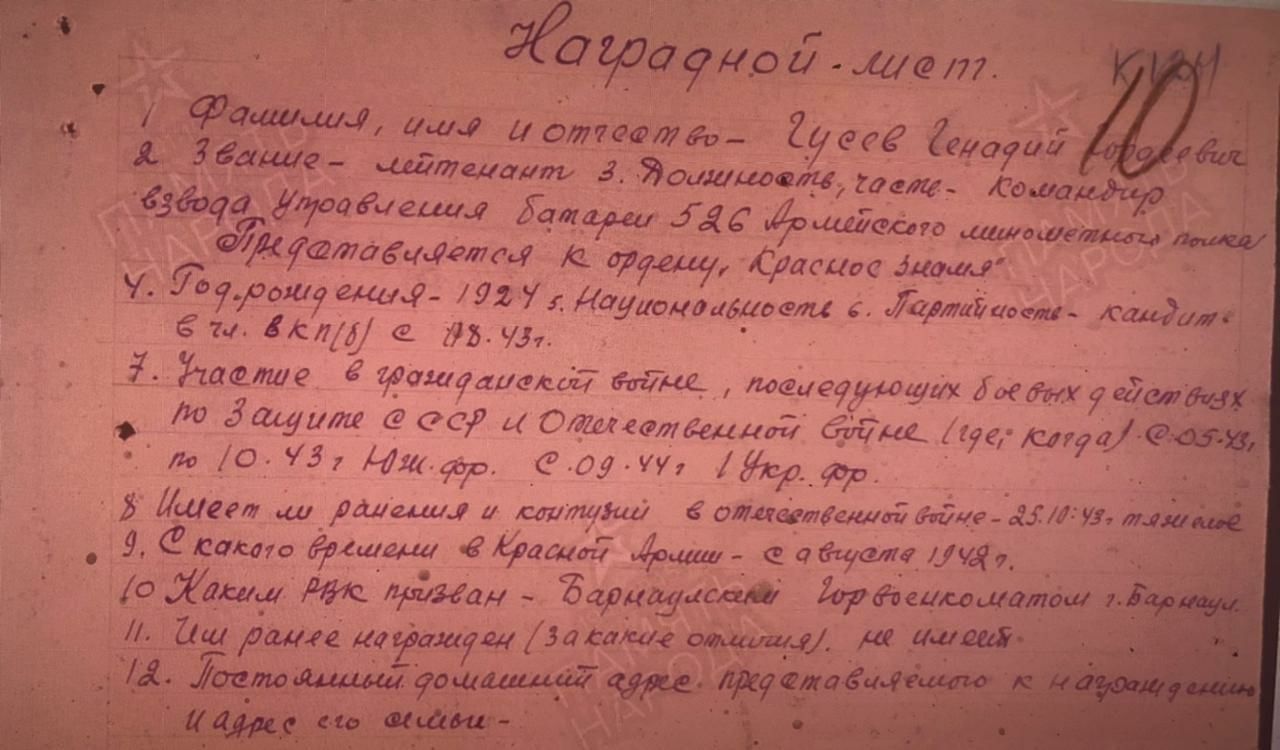 Наградной лист.
10
1 Фамилия, имя и отчество – Гусев Генадий Гордеевич
2 Звание – лейтенант 3. Должность, часть – командир
взвода управления батареи 526 Армейского минометного полка
Представляется к ордену "Красное знамя"
4. Год рождения – 1924 5. Национальность 6. Партийность – кандит.
в чл. ВКП(б) с 08.43г.
7. Участие в гражданской войне, последующих боевых действиях
по защите СССР и Отечественной войне (где, когда) С 05.43г
по 10.43г Юж. фр. С 09.44г 1 Укр. фр.
8 Имеет ли ранения и контузии в отечественной войне – 25.10.43г тяжелое
9. С какого времени в Красной Армии – с августа 1942г.
10 Каким РВК призван – Барнаулский Горвоенкоматом г. Барнаул.
11. Чем ранее награжден (за какие отличия). не имеет
12. Постоянный домашний адрес представляемого к награждению
и адрес его семьи –
ПАМЯТЬ НАРОДА
ПАМЯТЬ НАРОДА
ПАМЯТЬ НАРОДА